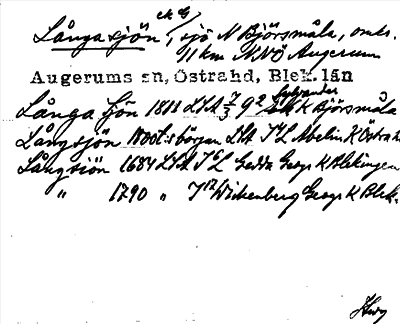 Långasjön, sjö N Björsmåla, omkr.
11 km NNÖ Augerum
Augerums sn, Östra hd, Blek. län
Långa Sjön 1811 LSA 7/3 92 K Björsmåla
Långsjön 1800t:s början LSA Abelin K Östra h
Långsiön 1684 LSA Gedda Geogr K Blekingen
" 1790 " Wickenberg Geogr K Blek.